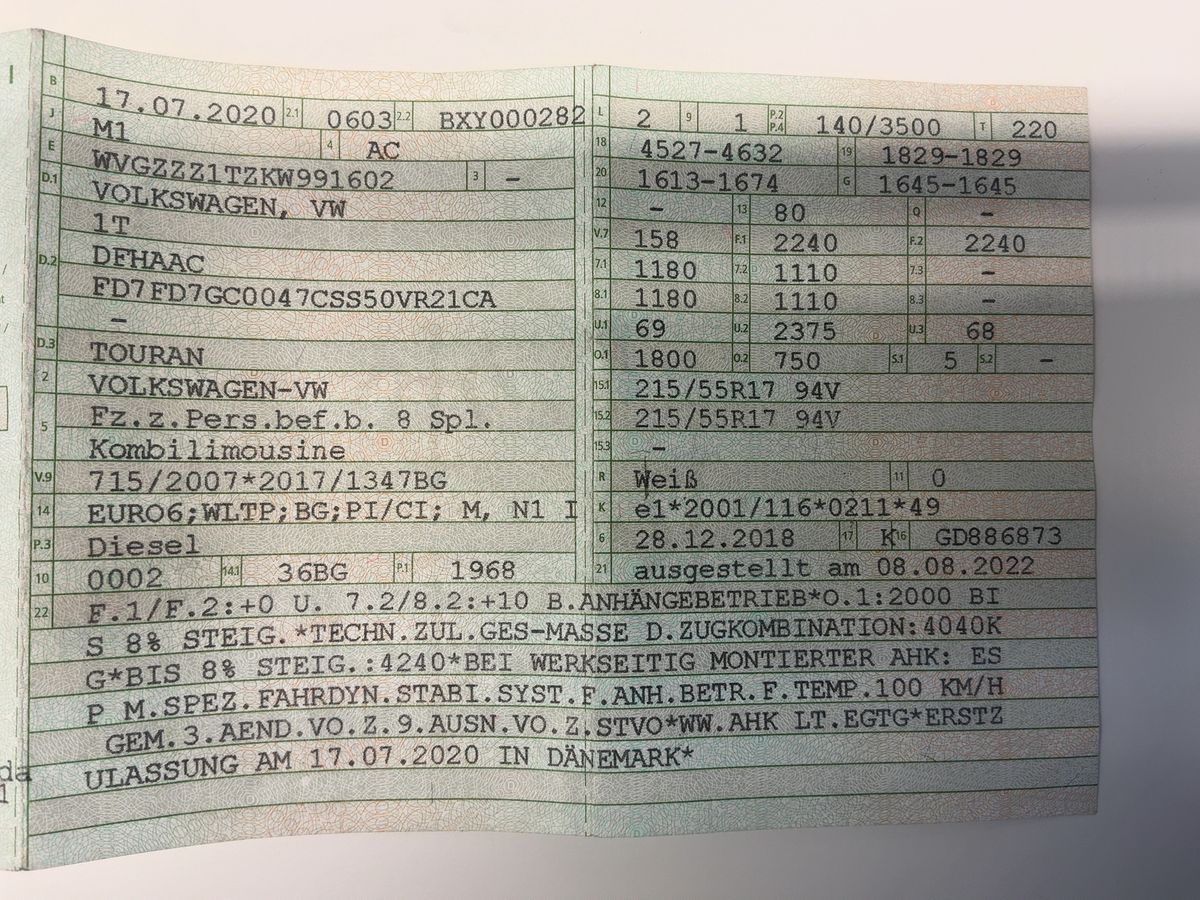 B 17.07.2020 2.1 0603 2.2 BXY000282
J M1 4 AC
E WVGZZZ1TZKW991602 3 –
D.1 VOLKSWAGEN, VW
1T
D.2 DFHAAC
FD7FD7GC0047CSS50VR21CA
–
D.3 TOURAN
2 VOLKSWAGEN-VW
5 Fz.z.Pers.bef.b. 8 Spl.
Kombilimousine
V.9 715/2007*2017/1347BG
14 EURO6;WLTP;BG;PI/CI; M, N1 I
P.3 Diesel
10 0002 14.1 36BG P.1 1968
L 2 9 1 P.2 P.4 140/3500 T 220
18 4527-4632 19 1829-1829
20 1613-1674 G 1645-1645
12 – 13 80 Q –
V.7 158 F.1 2240 F.2 2240
7.1 1180 7.2 1110 7.3 –
8.1 1180 8.2 1110 8.3 –
U.1 69 U.2 2375 U.3 68
O.1 1800 O.2 750 S.1 5 S.2 –
15.1 215/55R17 94V
15.2 215/55R17 94V
15.3 –
R Weiß 11 0
K e1*2001/116*0211*49
6 28.12.2018 17 K 16 GD886873
21 ausgestellt am 08.08.2022
22 F.1/F.2:+0 U. 7.2/8.2:+10 B.ANHÄNGEBETRIEB*O.1:2000 BI
S 8% STEIG.*TECHN.ZUL.GES-MASSE D.ZUGKOMBINATION:4040K
G*BIS 8% STEIG.:4240*BEI WERKSEITIG MONTIERTER AHK: ES
P M.SPEZ.FAHRDYN.STABI.SYST.F.ANH.BETR.F.TEMP.100 KM/H
GEM.3.AEND.VO.Z.9.AUSN.VO.Z.STVO*WW.AHK LT.EGTG*ERSTZ
ULASSUNG AM 17.07.2020 IN DÄNEMARK*